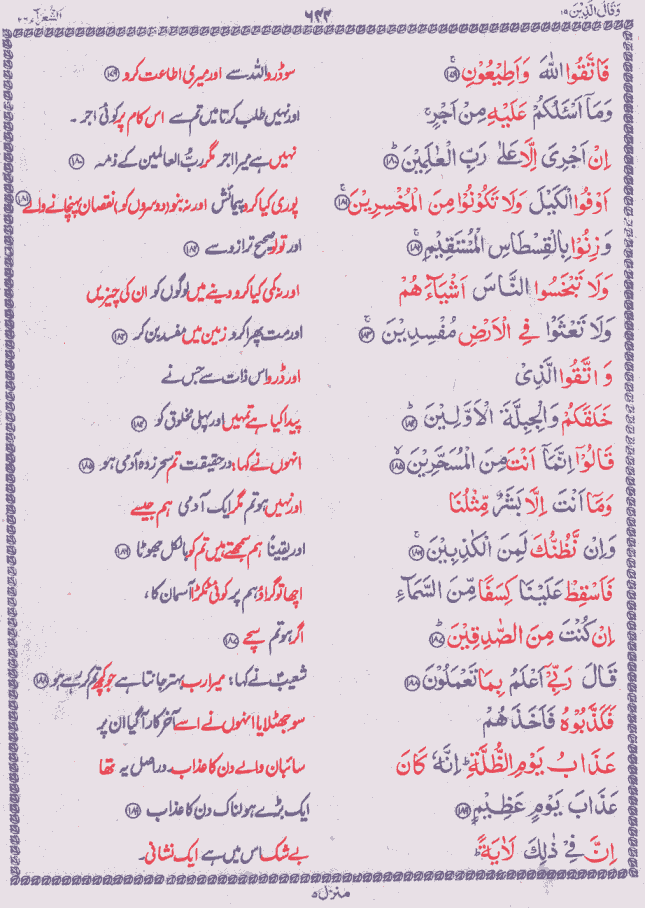 وَقَالَ الَّذِيْنَ ١٩ ٦٢٢ الشُّعَرَآء ٢٦
فَاتَّقُوا اللّٰهَ وَاَطِيْعُوْنِ ۚ ﴿۱۷۹﴾ سو ڈرو اللہ سے اور میری اطاعت کرو ﴿۱۷۹﴾
وَمَآ اَسْـَٔلُكُمْ عَلَيْهِ مِنْ اَجْرٍ ۚ اور نہیں طلب کرتا میں تم سے اس کام پر کوئی اجر ۔
اِنْ اَجْرِىَ اِلَّا عَلٰى رَبِّ الْعٰلَمِيْنَ ؕ ﴿۱۸۰﴾ نہیں ہے میرا اجر مگر ربُّ العالمین کے ذمہ ﴿۱۸۰﴾
اَوْفُوا الْكَيْلَ وَلَا تَكُوْنُوْا مِنَ الْمُخْسِرِيْنَ ۚ ﴿۱۸۱﴾ پوری کیا کرو پیمائش اور نہ بنو (دوسروں کو) نقصان پہنچانے والے ﴿۱۸۱﴾
وَزِنُوْا بِالْقِسْطَاسِ الْمُسْتَقِيْمِ ۚ ﴿۱۸۲﴾ اور تولو صحیح ترازو سے ﴿۱۸۲﴾
وَلَا تَبْخَسُوا النَّاسَ اَشْيَآءَهُمْ اور نہ کمی کیا کرو دینے میں لوگوں کو ان کی چیزیں
وَلَا تَعْثَوْا فِى الْاَرْضِ مُفْسِدِيْنَ ۚ ﴿۱۸۳﴾ اور مت پھرا کرو زمین میں مفسد بن کر ﴿۱۸۳﴾
وَاتَّقُوا الَّذِىْ اور ڈرو اس ذات سے جس نے
خَلَقَكُمْ وَالْجِبِلَّةَ الْاَوَّلِيْنَ ؕ ﴿۱۸۴﴾ پیدا کیا ہے تمہیں اور پہلی مخلوق کو ﴿۱۸۴﴾
قَالُوْٓا اِنَّمَآ اَنْتَ مِنَ الْمُسَحَّرِيْنَ ۙ ﴿۱۸۵﴾ انہوں نے کہا: درحقیقت تم سحر زدہ آدمی ہو ﴿۱۸۵﴾
وَمَآ اَنْتَ اِلَّا بَشَرٌ مِّثْلُنَا اور نہیں ہو تم مگر ایک آدمی ہم جیسے
وَاِنْ نَّظُنُّكَ لَمِنَ الْكٰذِبِيْنَ ۚ ﴿۱۸۶﴾ اور یقیناً ہم سمجھتے ہیں تم کو بالکل جھوٹا ﴿۱۸۶﴾
فَاَسْقِطْ عَلَيْنَا كِسَفًا مِّنَ السَّمَآءِ اچھا تو گرا دو ہم پر کوئی ٹکڑا آسمان کا ،
اِنْ كُنْتَ مِنَ الصّٰدِقِيْنَ ؕ ﴿۱۸۷﴾ اگر ہو تم سچے ﴿۱۸۷﴾
قَالَ رَبِّىْٓ اَعْلَمُ بِمَا تَعْمَلُوْنَ ﴿۱۸۸﴾ شعیبؑ نے کہا: میرا رب بہتر جانتا ہے جو کچھ تم کر رہے ہو ﴿۱۸۸﴾
فَكَذَّبُوْهُ فَاَخَذَهُمْ سو جھٹلایا انہوں نے اسے آخر کار آ گیا ان پر
عَذَابُ يَوْمِ الظُّلَّةِ ؕ اِنَّهٗ كَانَ سائبان والے دن کا عذاب۔ دراصل یہ تھا
عَذَابَ يَوْمٍ عَظِيْمٍ ﴿۱۸۹﴾ ایک بڑے ہولناک دن کا عذاب ﴿۱۸۹﴾
اِنَّ فِىْ ذٰلِكَ لَاٰيَةً ؕ بے شک اس میں ہے ایک نشانی۔
منزل ۵